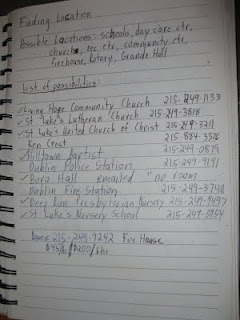 Finding Location
Possible Locations: schools, day care ctr,
church, rec ctr, community ctr,
firehouse, Rotary, Grande Hall
List of possibilities:
✓ Living Hope Community Church 215-249-1133
✓ St. Luke's Lutheran Church 215-249-3818
✓ St Luke's United Church of Christ 215-249-3211
Fern Crest 215-884-3376
✓ Hilltown Baptist 215-249-0879
Dublin Police Station 215-249-9191
✓ Boro Hall Emailed "no room"
Dublin Fire Station 215-249-3740
✓ Deep Run Presbyterian Nursery 215-249-9497
✓ St Luke's Nursery School 215-249-3954
215-249-9242 Fire House
$45/hr $200/6hr